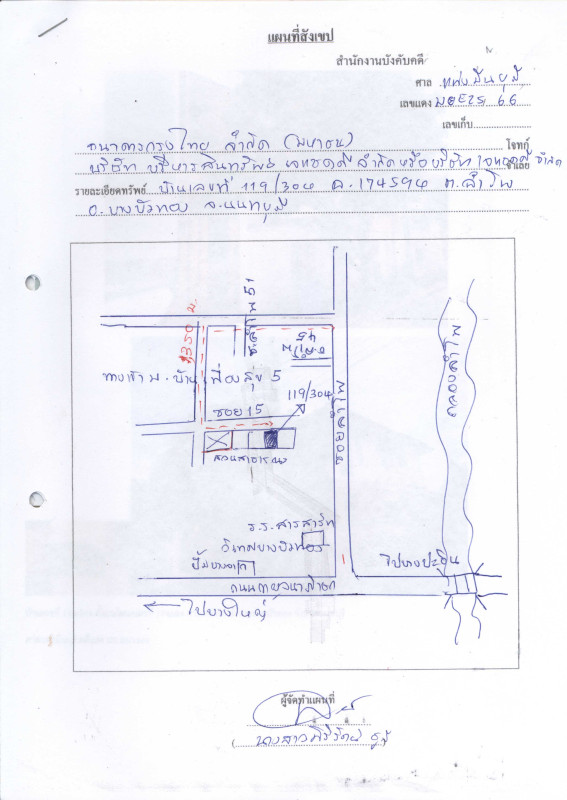 แผนที่สังเขป
สำนักงานบังคับคดี
ศาล แพ่งมีนบุรี
เลขแดง 66
เลขเก็บ
ธนาคารกรุงไทย จำกัด (มหาชน) โจทก์
บริษัท บริหารสินทรัพย์ เจเอชดี จำกัด หรือ บริษัท จำกัด จำเลย
รายละเอียดทรัพย์ บ้านเลขที่ 119/304 ฉ. 174594 ต.ลำโพ
อ. บางบัวทอง จ.นนทบุรี
350 ม.
ซ.ลำโพ 51
ซ.ลำโพ 45
ทางเข้า ม. บ้าน เฟื่องสุข 5
119/304
ซอย 15
สวนสาธารณะ
ซอยลำโพ
คลองลำโพ
ร.ร. สารสาสน์
วิเทศบางบัวทอง
ปั๊มบางจาก
ไปบางปะอิน
ถนนกาญจนาภิเษก
ไปบางใหญ่
ผู้จัดทำแผนที่
นางสาวพิรีรัตน์